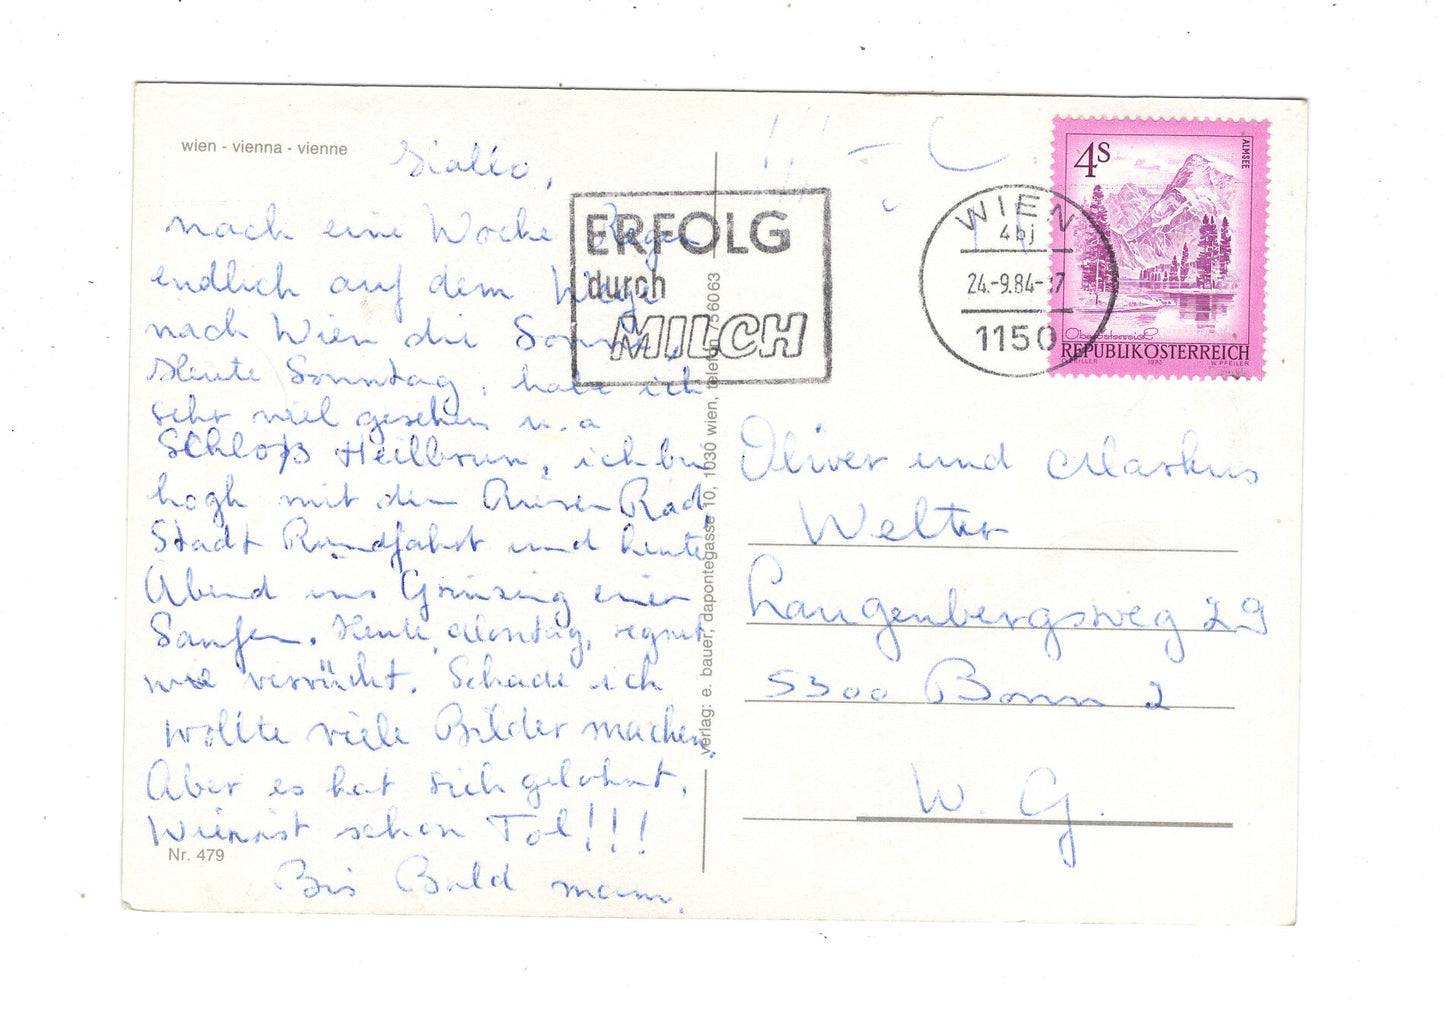 wien - vienna - vienne
Hallo,
nach eine Woche Regen
endlich auf dem Wege
nach Wien die Sonne.
Heute Sonntag, habe ich
sehr viel gesehen u.a
Schloß Heilbrun, ich bin
hogh mit dem Riesen Rad,
Stadt Rundfahrt und heute
Abend ins Grinzing einen
Saufen. Heute, Montag, regnet
wie verrückt. Schade ich
wollte viele Bilder machen.
Aber es hat sich gelohnt.
Wien ist schon Tol!!!
Bis Bald mam.
Nr. 479
verlag: e. bauer, dapontegasse 10, 1030 wien, telefon 756063
ERFOLG
durch
MILCH
WIEN
4bj
24.-9.84-17
1150
4S
ALMSEE
Oberösterreich
REPUBLIK ÖSTERREICH
1973
W. PFEILER
Oliver und Markus
Welter
Langenbergsweg 29
5300 Bonn 2
W. G.